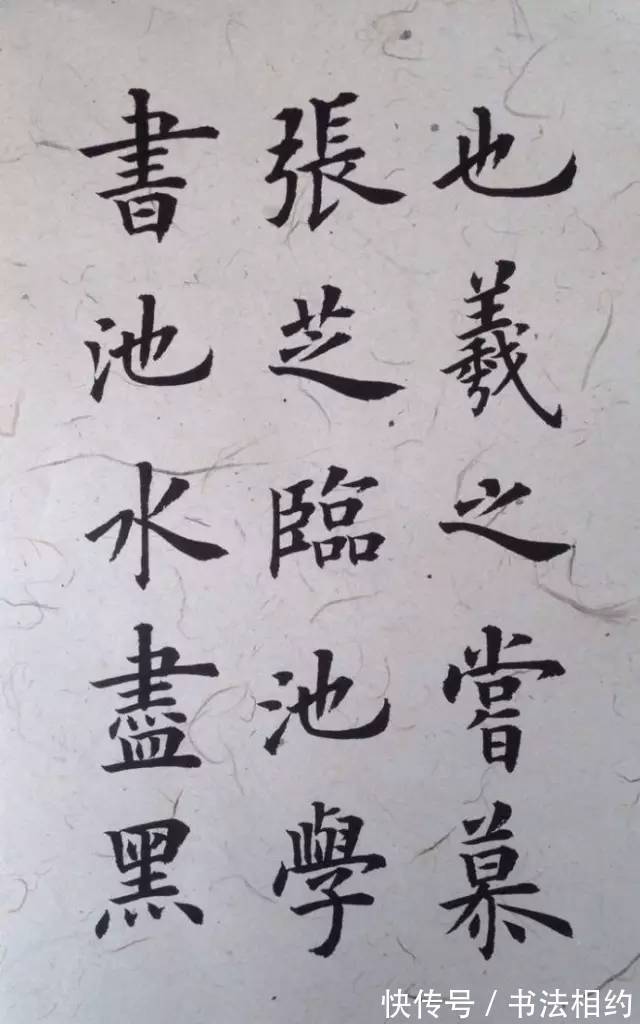 也羲之嘗慕
張芝臨池學
書池水盡黑
快传号/书法相约